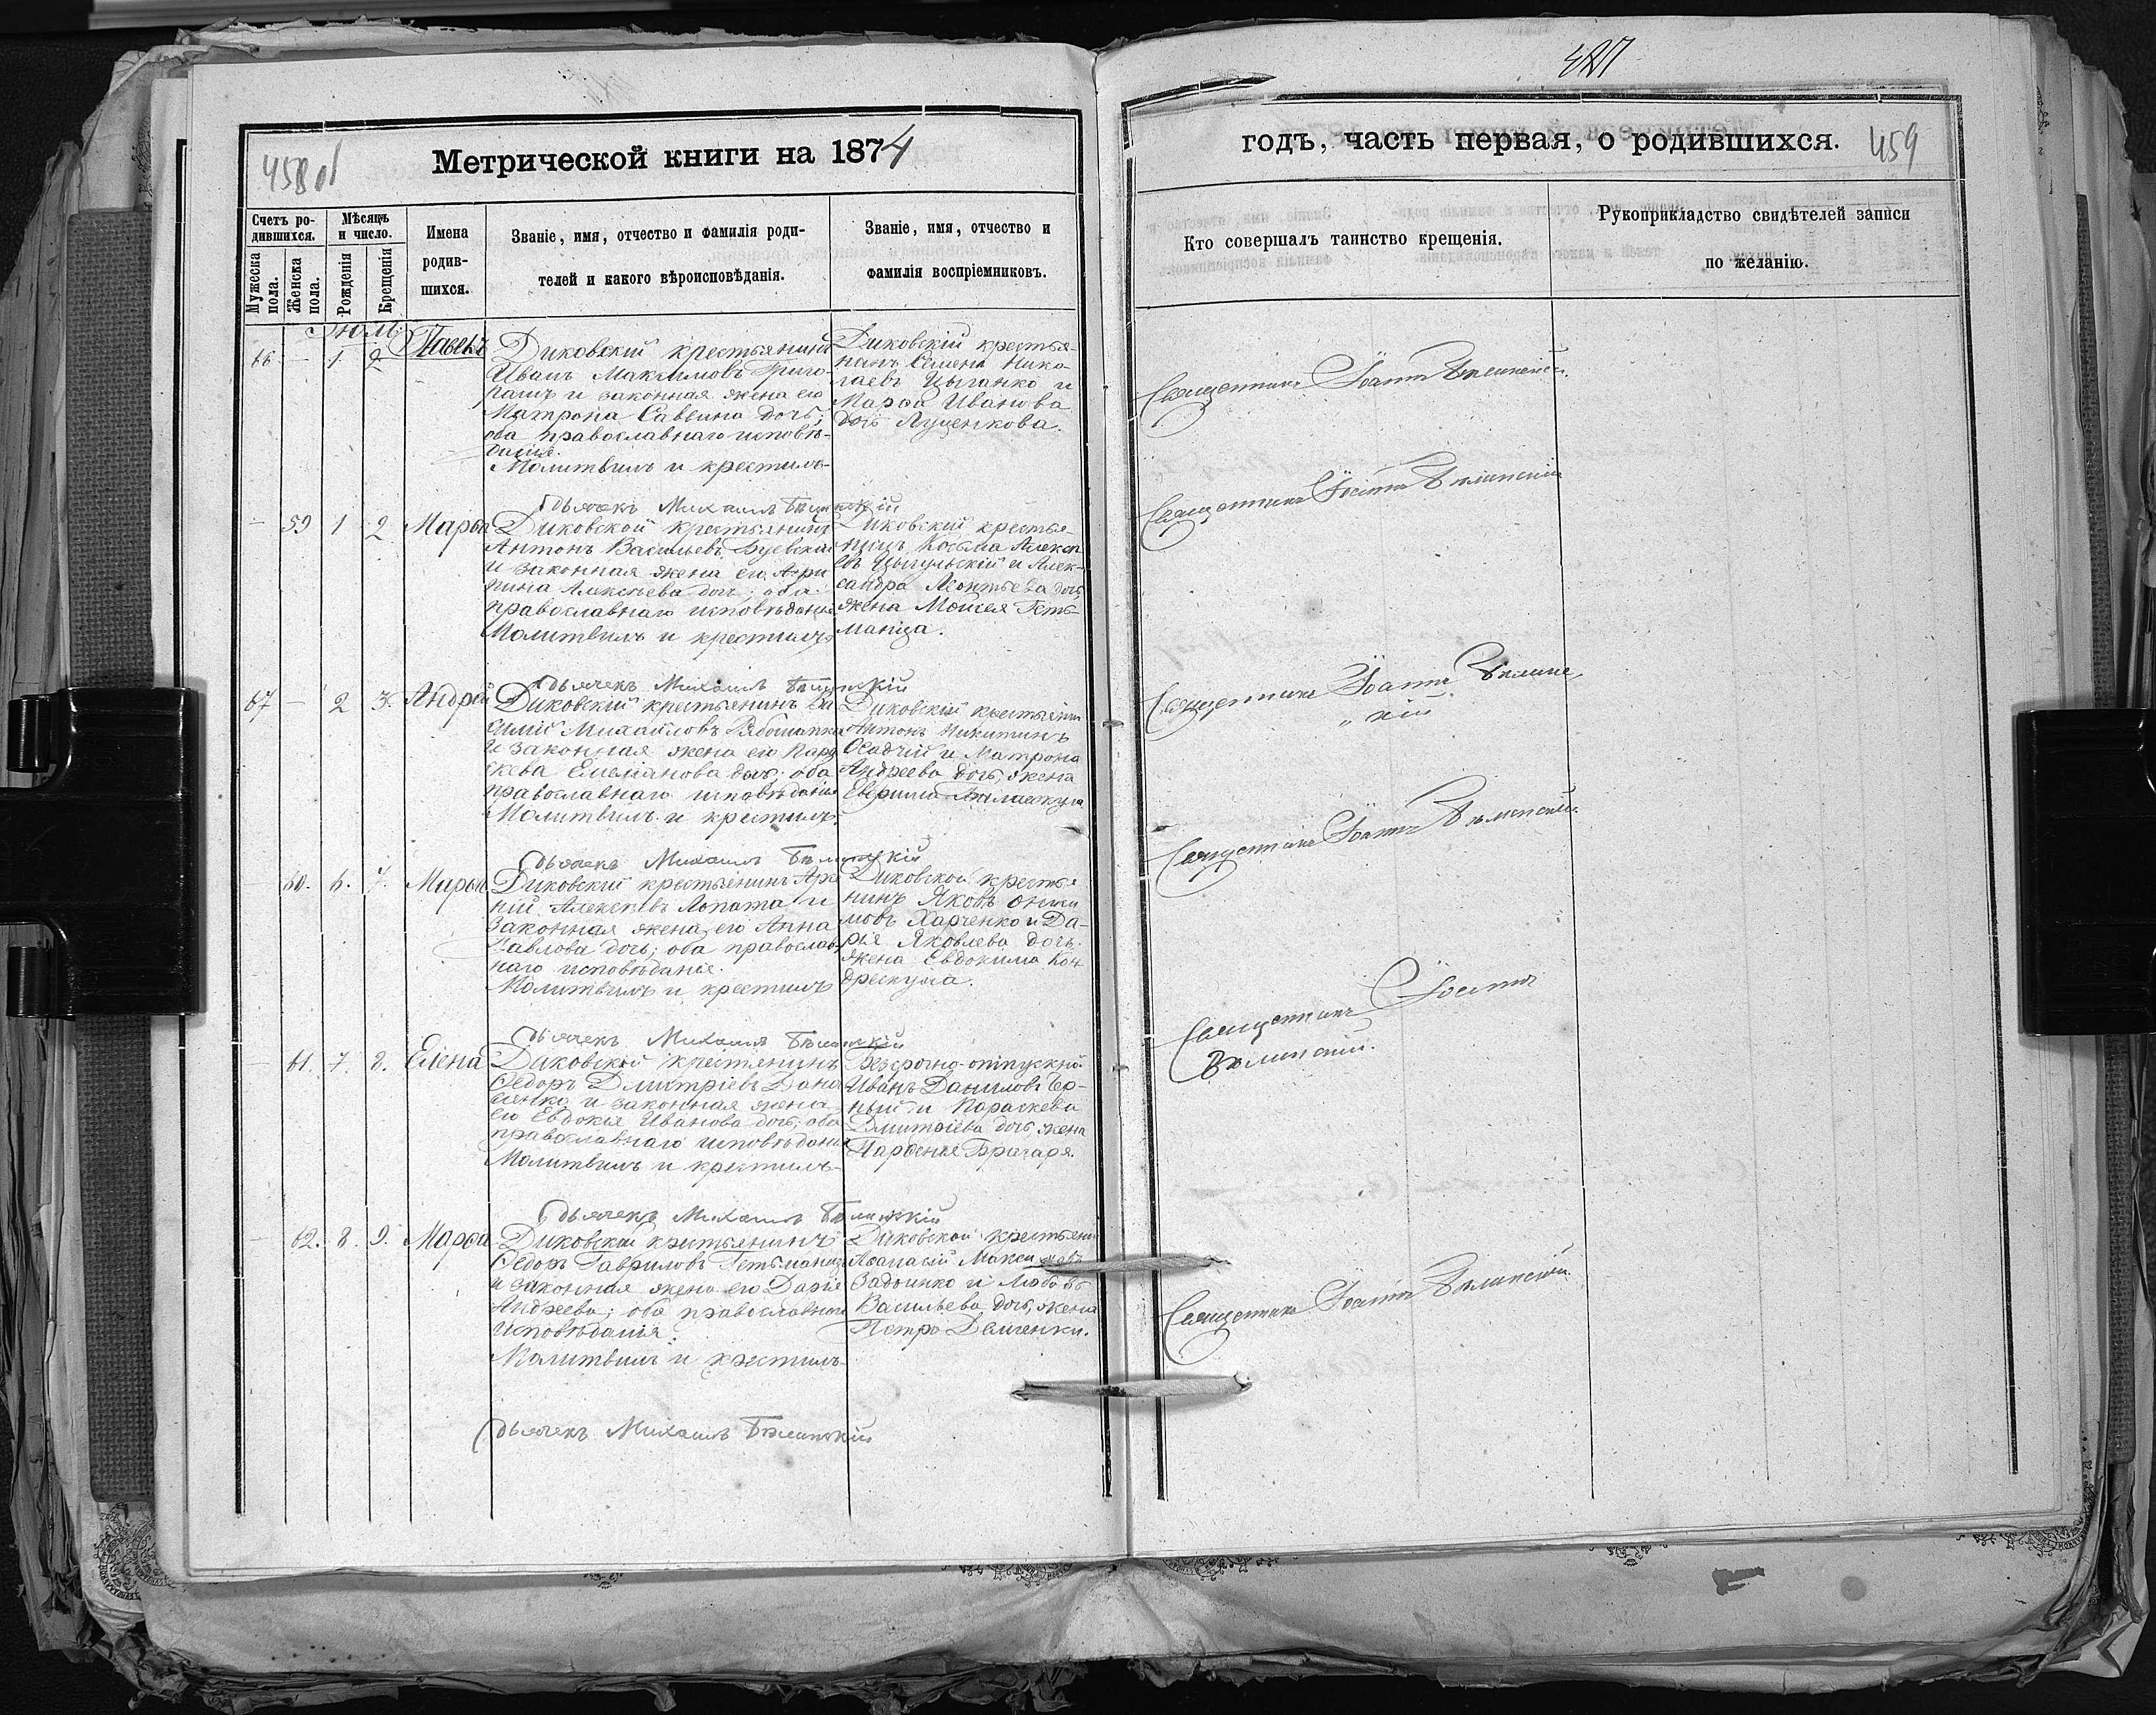 458 об
Метрической книги на 1874
Счетъ ро-
дившихся.
Мѣсяцъ
и число.
Мужеска
пола.
Женска
пола.
Рожденія
Крещенія
Имена
родив-
шихся.
Званіе, имя, отчество и фамилія роди-
телей и какого вѣроисповѣданія.
Званіе, имя, отчество и
фамилія воспріемниковъ.
Іюль
66 — 1 2 Павелъ
Диковскій крестьянинъ
Иванъ Максимовъ Григо-
рашъ и законная жена его
Матрона Саввина дочь;
оба православнаго исповѣ-
данія.
Молитвилъ и крестилъ
Диковскій крестья-
нинъ Семенъ Нико-
лаевъ Цыганко и
Марѳа Иванова
дочь Луценкова.
Дьячекъ Михаилъ Бѣлинскій
— 59 1 2 Марѳа
Диковской крестьянинъ
Антонъ Васильевъ
и законная жена его Агри
пина Алексѣева дочь; оба
православнаго исповѣданія
Молитвилъ и крестилъ
Диковскій крестья-
нинъ Косьма Алексѣ
евъ и Алек-
сандра Леонтьева дочь,
жена Мойсея Геть-
манца.
Дьячекъ Михаилъ Бѣлинскій
67 — 2 3. Андрей
Диковскій крестьянинъ Ва
силій Михайловъ Рябошапка
и законная жена его Пара
скева Емеліанова дочь; оба
православнаго исповѣданія
Молитвилъ и крестилъ.
Диковскій крестьянинъ
Антонъ Никитинъ
Осадчій и Матрона
Андреева дочь, жена
Дьячекъ Михаилъ Бѣлинскій
— 60. 6. 7. Марѳа
Диковскій крестьянинъ
Алексѣевъ Лопата и
законная жена его Анна
Павлова дочь; оба православ-
наго исповѣданія.
Молитвилъ и крестилъ
Диковской крестья
нинъ Яковъ Ониси
мовъ Харченко и Да-
рья Яковлева дочь
жена Евдокима Кон
дрескула.
Дьячекъ Михаилъ Бѣлинскій
— 61. 7. 8. Елена
Диковской крестьянинъ
Ѳедоръ Дмитріевъ
и законная жена
его Евдокія Иванова дочь; оба
православнаго исповѣданія
Молитвилъ и крестилъ
Безсрочно-отпускной
Иванъ Даниловъ Чер-
ный и Параскева
Дмитріева дочь, жена
Парѳенія Брагаря.
Дьячекъ Михаилъ Бѣлинскій
— 62. 8. 9. Марѳа
Диковской крестьянинъ
Ѳедоръ Гавриловъ Гетьманец
и законная жена его Дарія
Андреева; оба православнаго
исповѣданія.
Молитвилъ и крестилъ
Диковской крестьянин
Аѳанасій Максимовъ
и Любовь
Васильева дочь, жена
Петра Демченки.
Дьячекъ Михаилъ Бѣлинскій
годъ, часть первая, о родившихся.
459
Кто совершалъ таинство крещенія.
Рукоприкладство свидѣтелей записи
по желанію.
Священникъ Іоаннъ Бѣлинскій.
Священникъ Іоаннъ Бѣлинскій
Священникъ Іоаннъ Бѣлинс
„ кій.
Священникъ Іоаннъ Бѣлинскій.
Священникъ Іоаннъ
Бѣлинскій.
Священникъ Іоаннъ Бѣлинскій